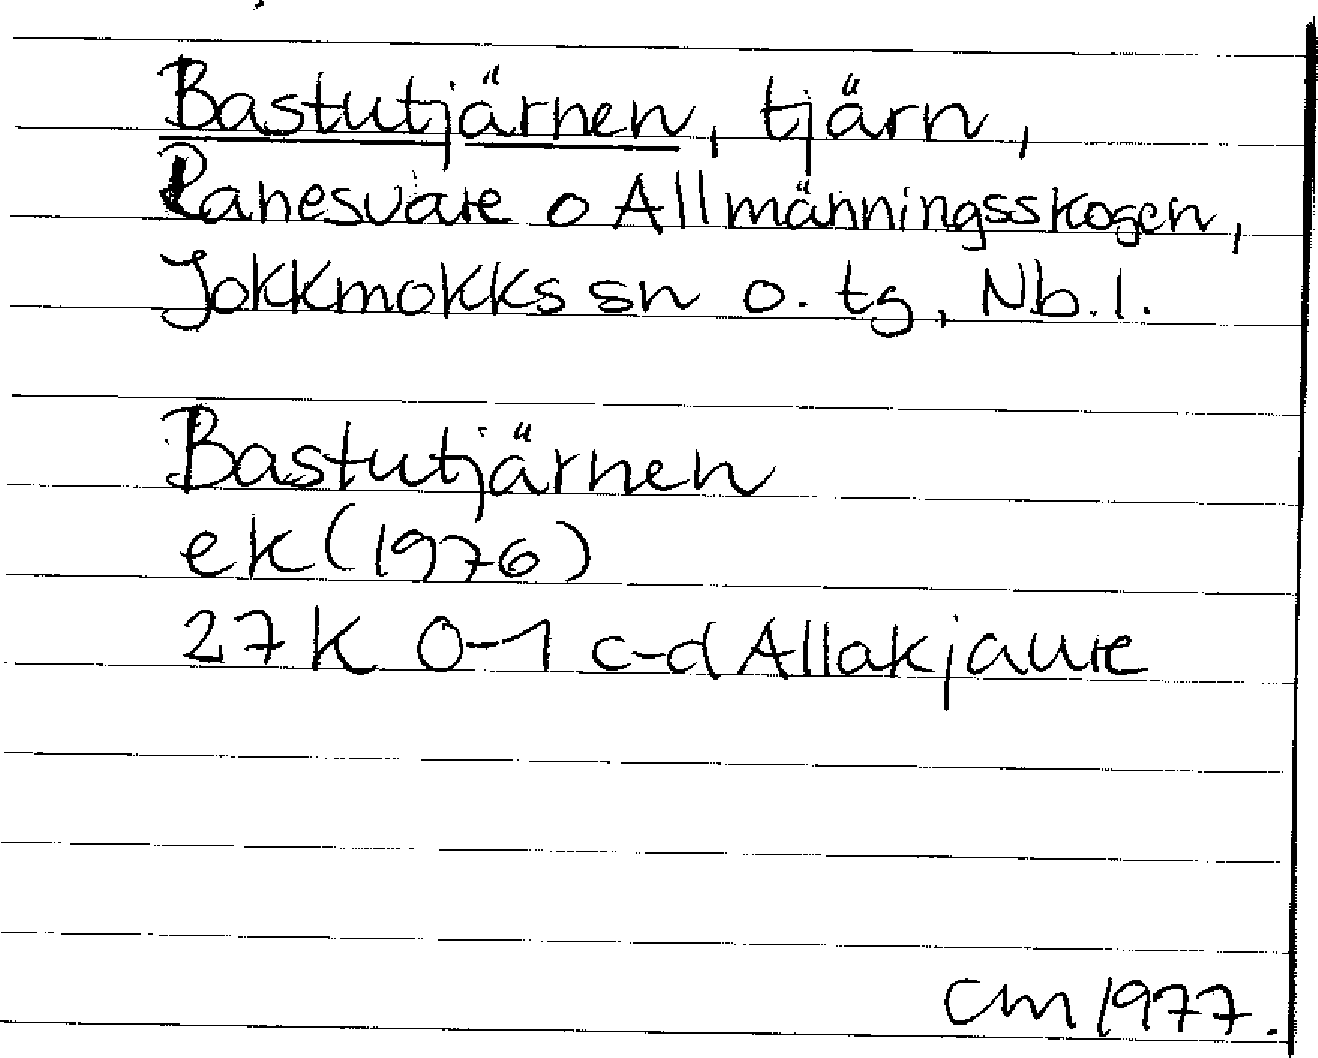 Bastutjärnen, tjärn,
Ranesvare o Allmänningsskogen,
Jokkmokks sn o. tg, Nb. l.
Bastutjärnen
ek (1976)
27 K 0-1 c-d Allakjaure
CM 1977.